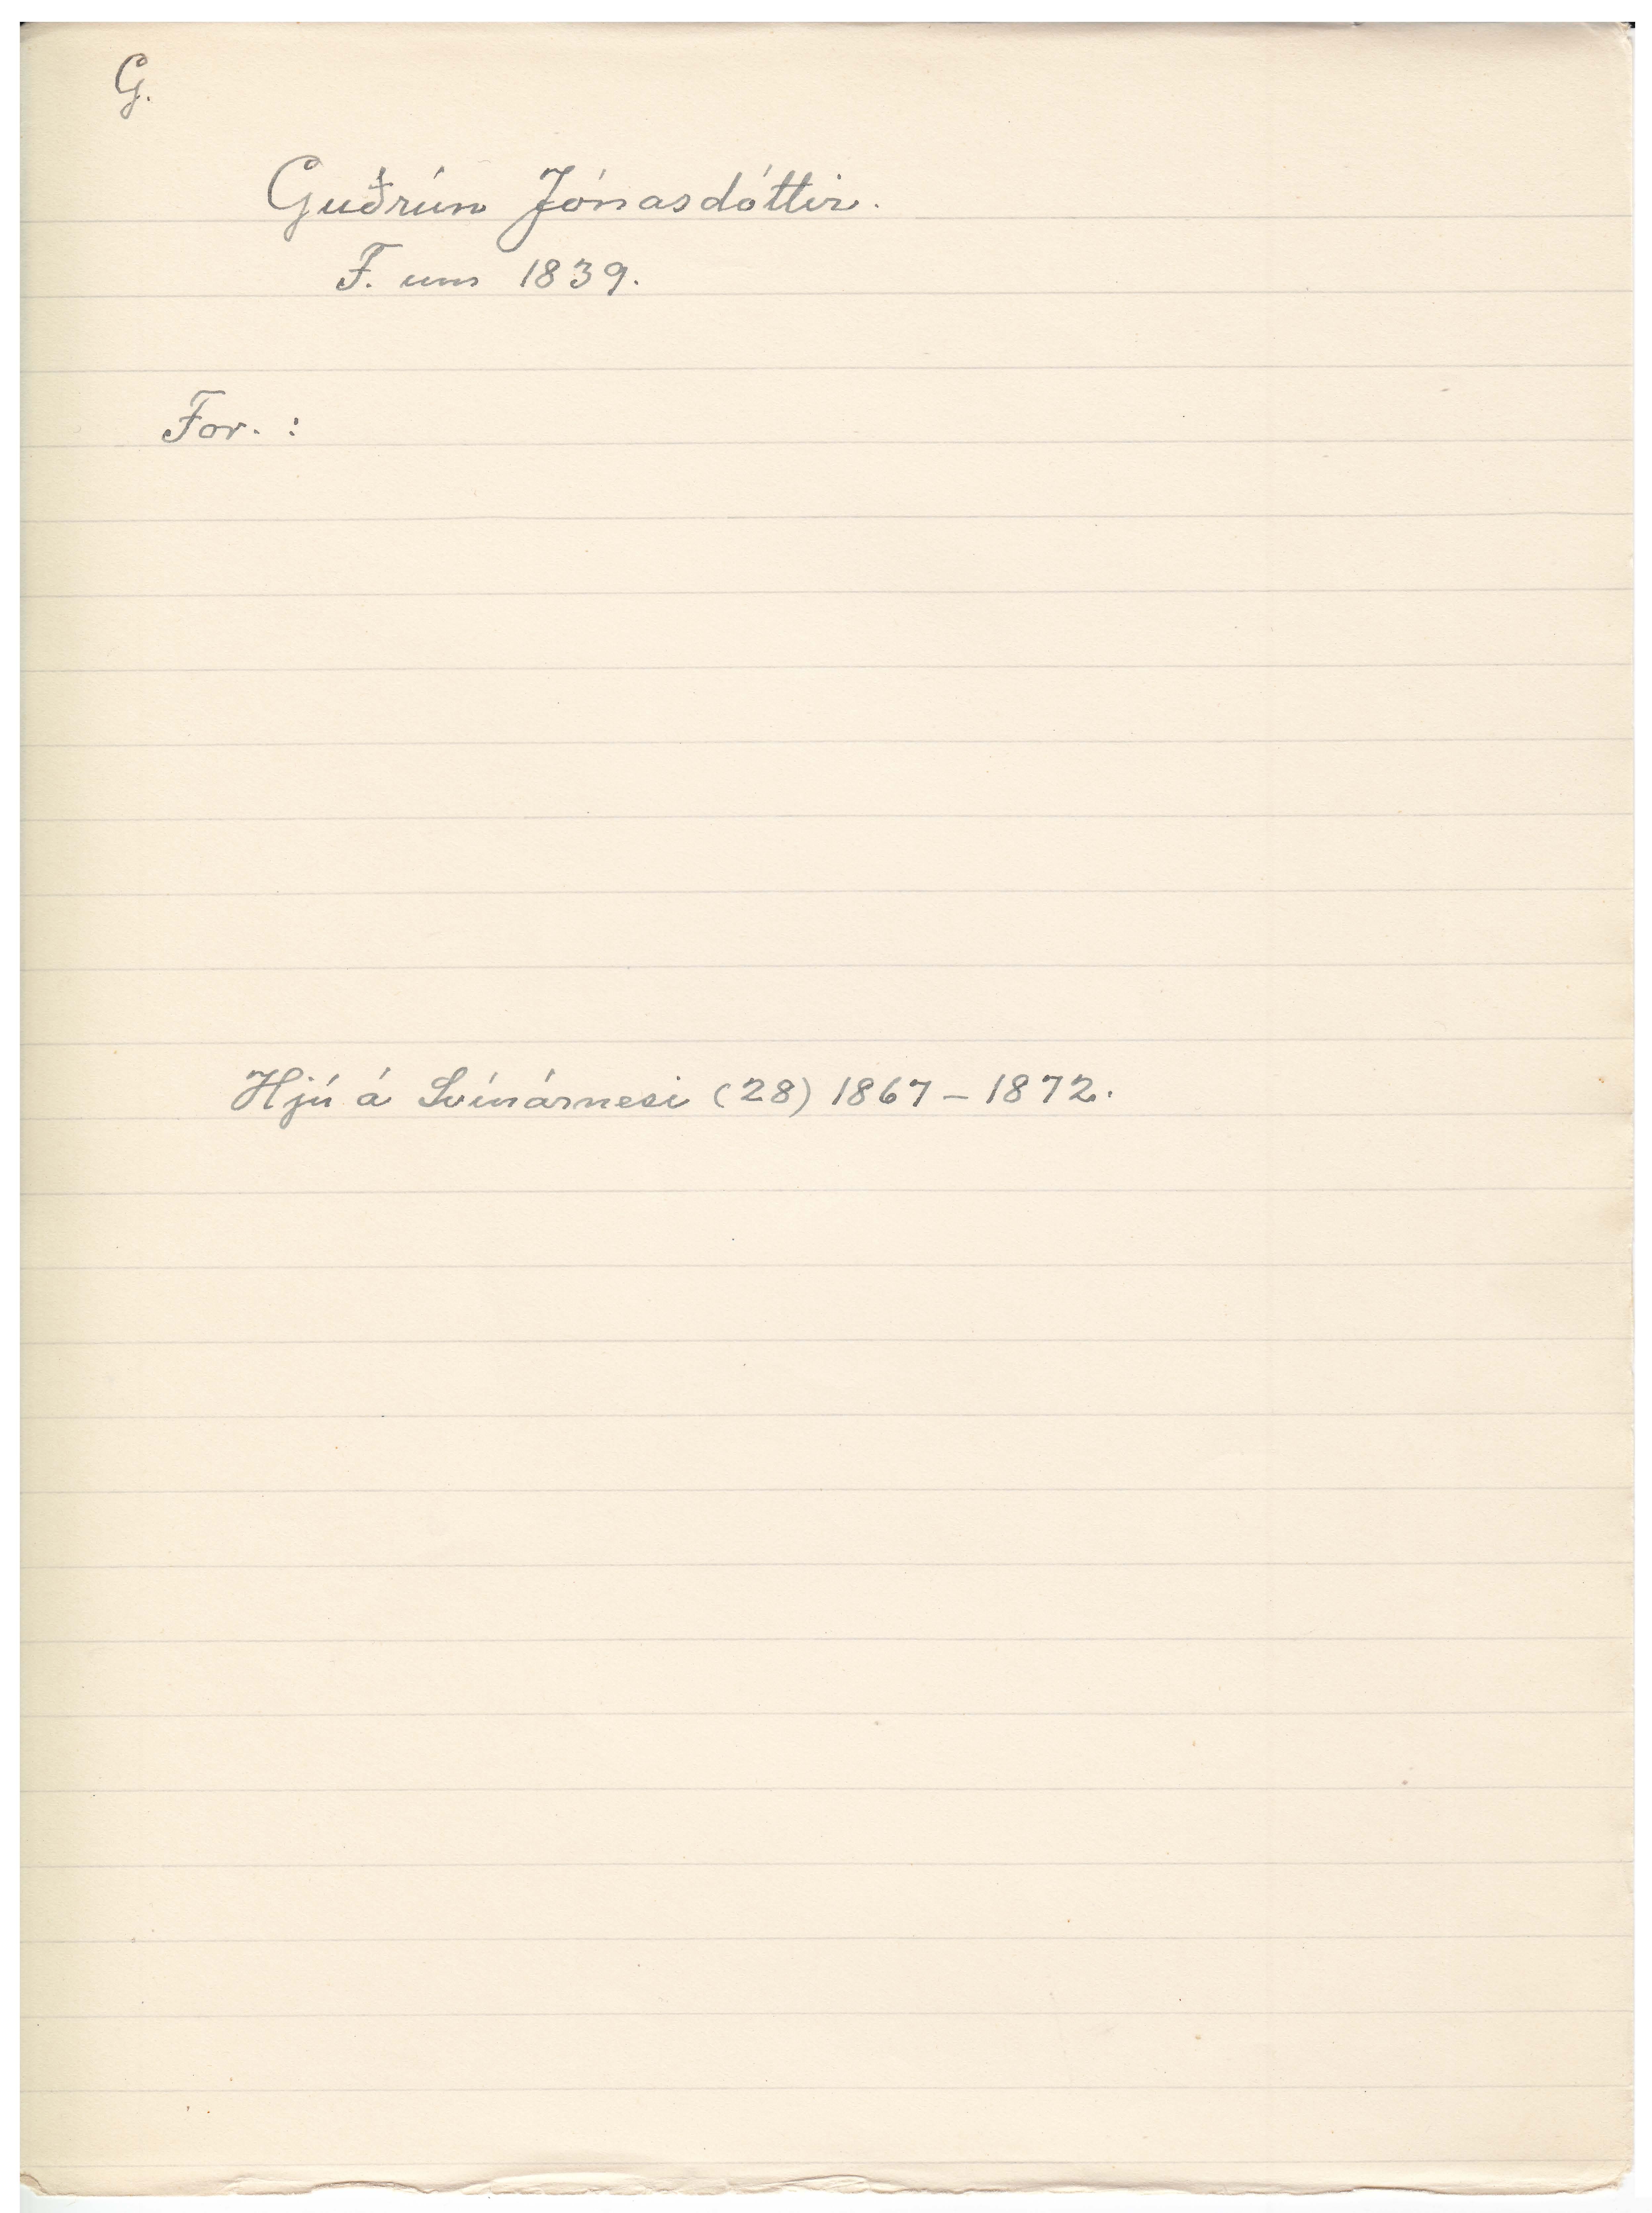 G.
Guðrún Jónasdóttir.
F. um 1839.
For. :
Hjú á Svínárnesi (28) 1867 – 1872.